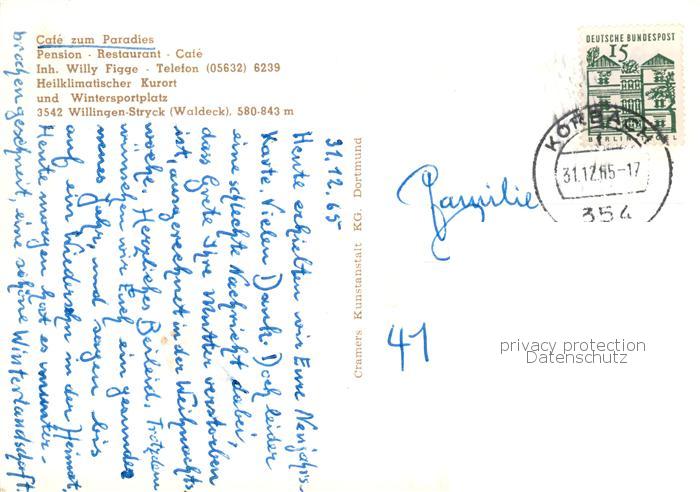 Café zum Paradies
Pension - Restaurant - Café
Inh. Willy Figge - Telefon (05632) 6239
Heilklimatischer Kurort
und Wintersportplatz
3542 Willingen-Stryck (Waldeck). 580-843 m
31.12.65
Heute erhielten wir Eure Neujahrs-
Karte. Vielen Dank. Doch leider
eine schlechte Nachricht dabei,
dass Grete Ihre Mutter verstorben
ist, ausgerechnet in der Weihnachts-
woche. Herzliches Beileid. Trotzdem
wünschen wir Euch ein gesundes
neues Jahr, und sagen bis
auf ein Wiedersehn in der Heimat.
Heute morgen hat es ununter-
brochen geschneit, eine schöne Winterlandschaft.
Cramers Kunstanstalt KG. Dortmund
Familie
41
DEUTSCHE BUNDESPOST
15
BERLIN
KORBACH
31.12.65-17
354
privacy protection
Datenschutz